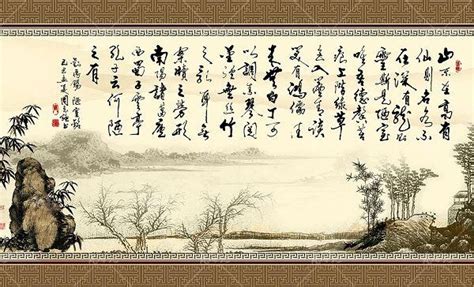 山不在高有
仙則名水不
在深有龍則
靈斯是陋室
惟吾德馨苔
痕上階綠草
色入簾青談
笑有鴻儒往
來無白丁可
以調素琴閱
金經無絲竹
之亂耳無
案牘之勞形
南陽諸葛廬
西蜀子雲亭
孔子云何陋
之有
劉禹錫 陋室銘